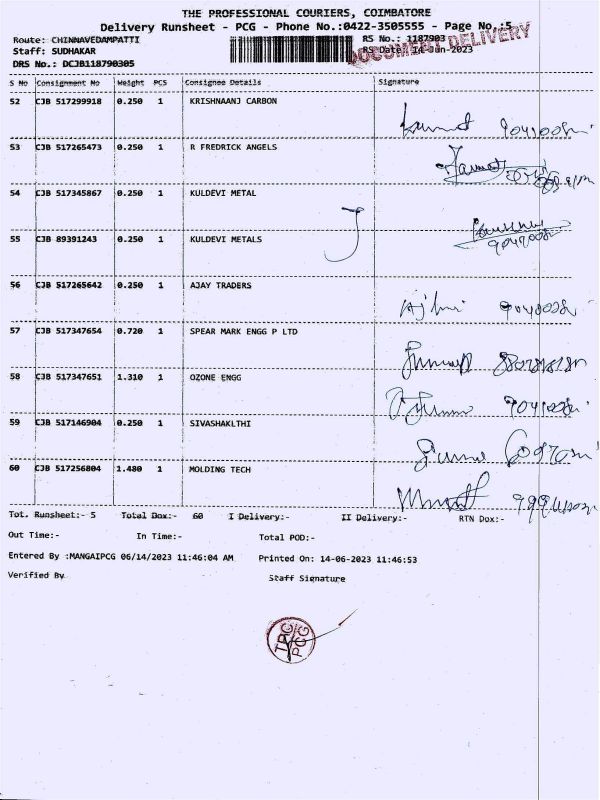 THE PROFESSIONAL COURIERS, COIMBATORE
Delivery Runsheet - PCG - Phone No.:0422-3505555 - Page No.:5
Route: CHINNAVEDAMPATTI RS No.: 1187903
Staff: SUDHAKAR RS Date: 14-Jun-2023
DOCUMENT DELIVERY
DRS No.: DCJB118790305
S No Consignment No Weight PCS Consignee Details Signature
52 CJB 517299918 0.250 1 KRISHNAANJ CARBON
53 CJB 517265473 0.250 1 R FREDRICK ANGELS
54 CJB 517345867 0.250 1 KULDEVI METAL
55 CJB 89391243 0.250 1 KULDEVI METALS
56 CJB 517265642 0.250 1 AJAY TRADERS
57 CJB 517347654 0.720 1 SPEAR MARK ENGG P LTD
58 CJB 517347651 1.310 1 OZONE ENGG
59 CJB 517146904 0.250 1 SIVASHAKLTHI
60 CJB 517256804 1.480 1 MOLDING TECH
Tot. Runsheet:- 5 Total Dox:- 60 I Delivery:- II Delivery:- RTN Dox:-
Out Time:- In Time:- Total POD:-
Entered By :MANGAIPCG 06/14/2023 11:46:04 AM Printed On: 14-06-2023 11:46:53
Verified By Staff Signature
PCG